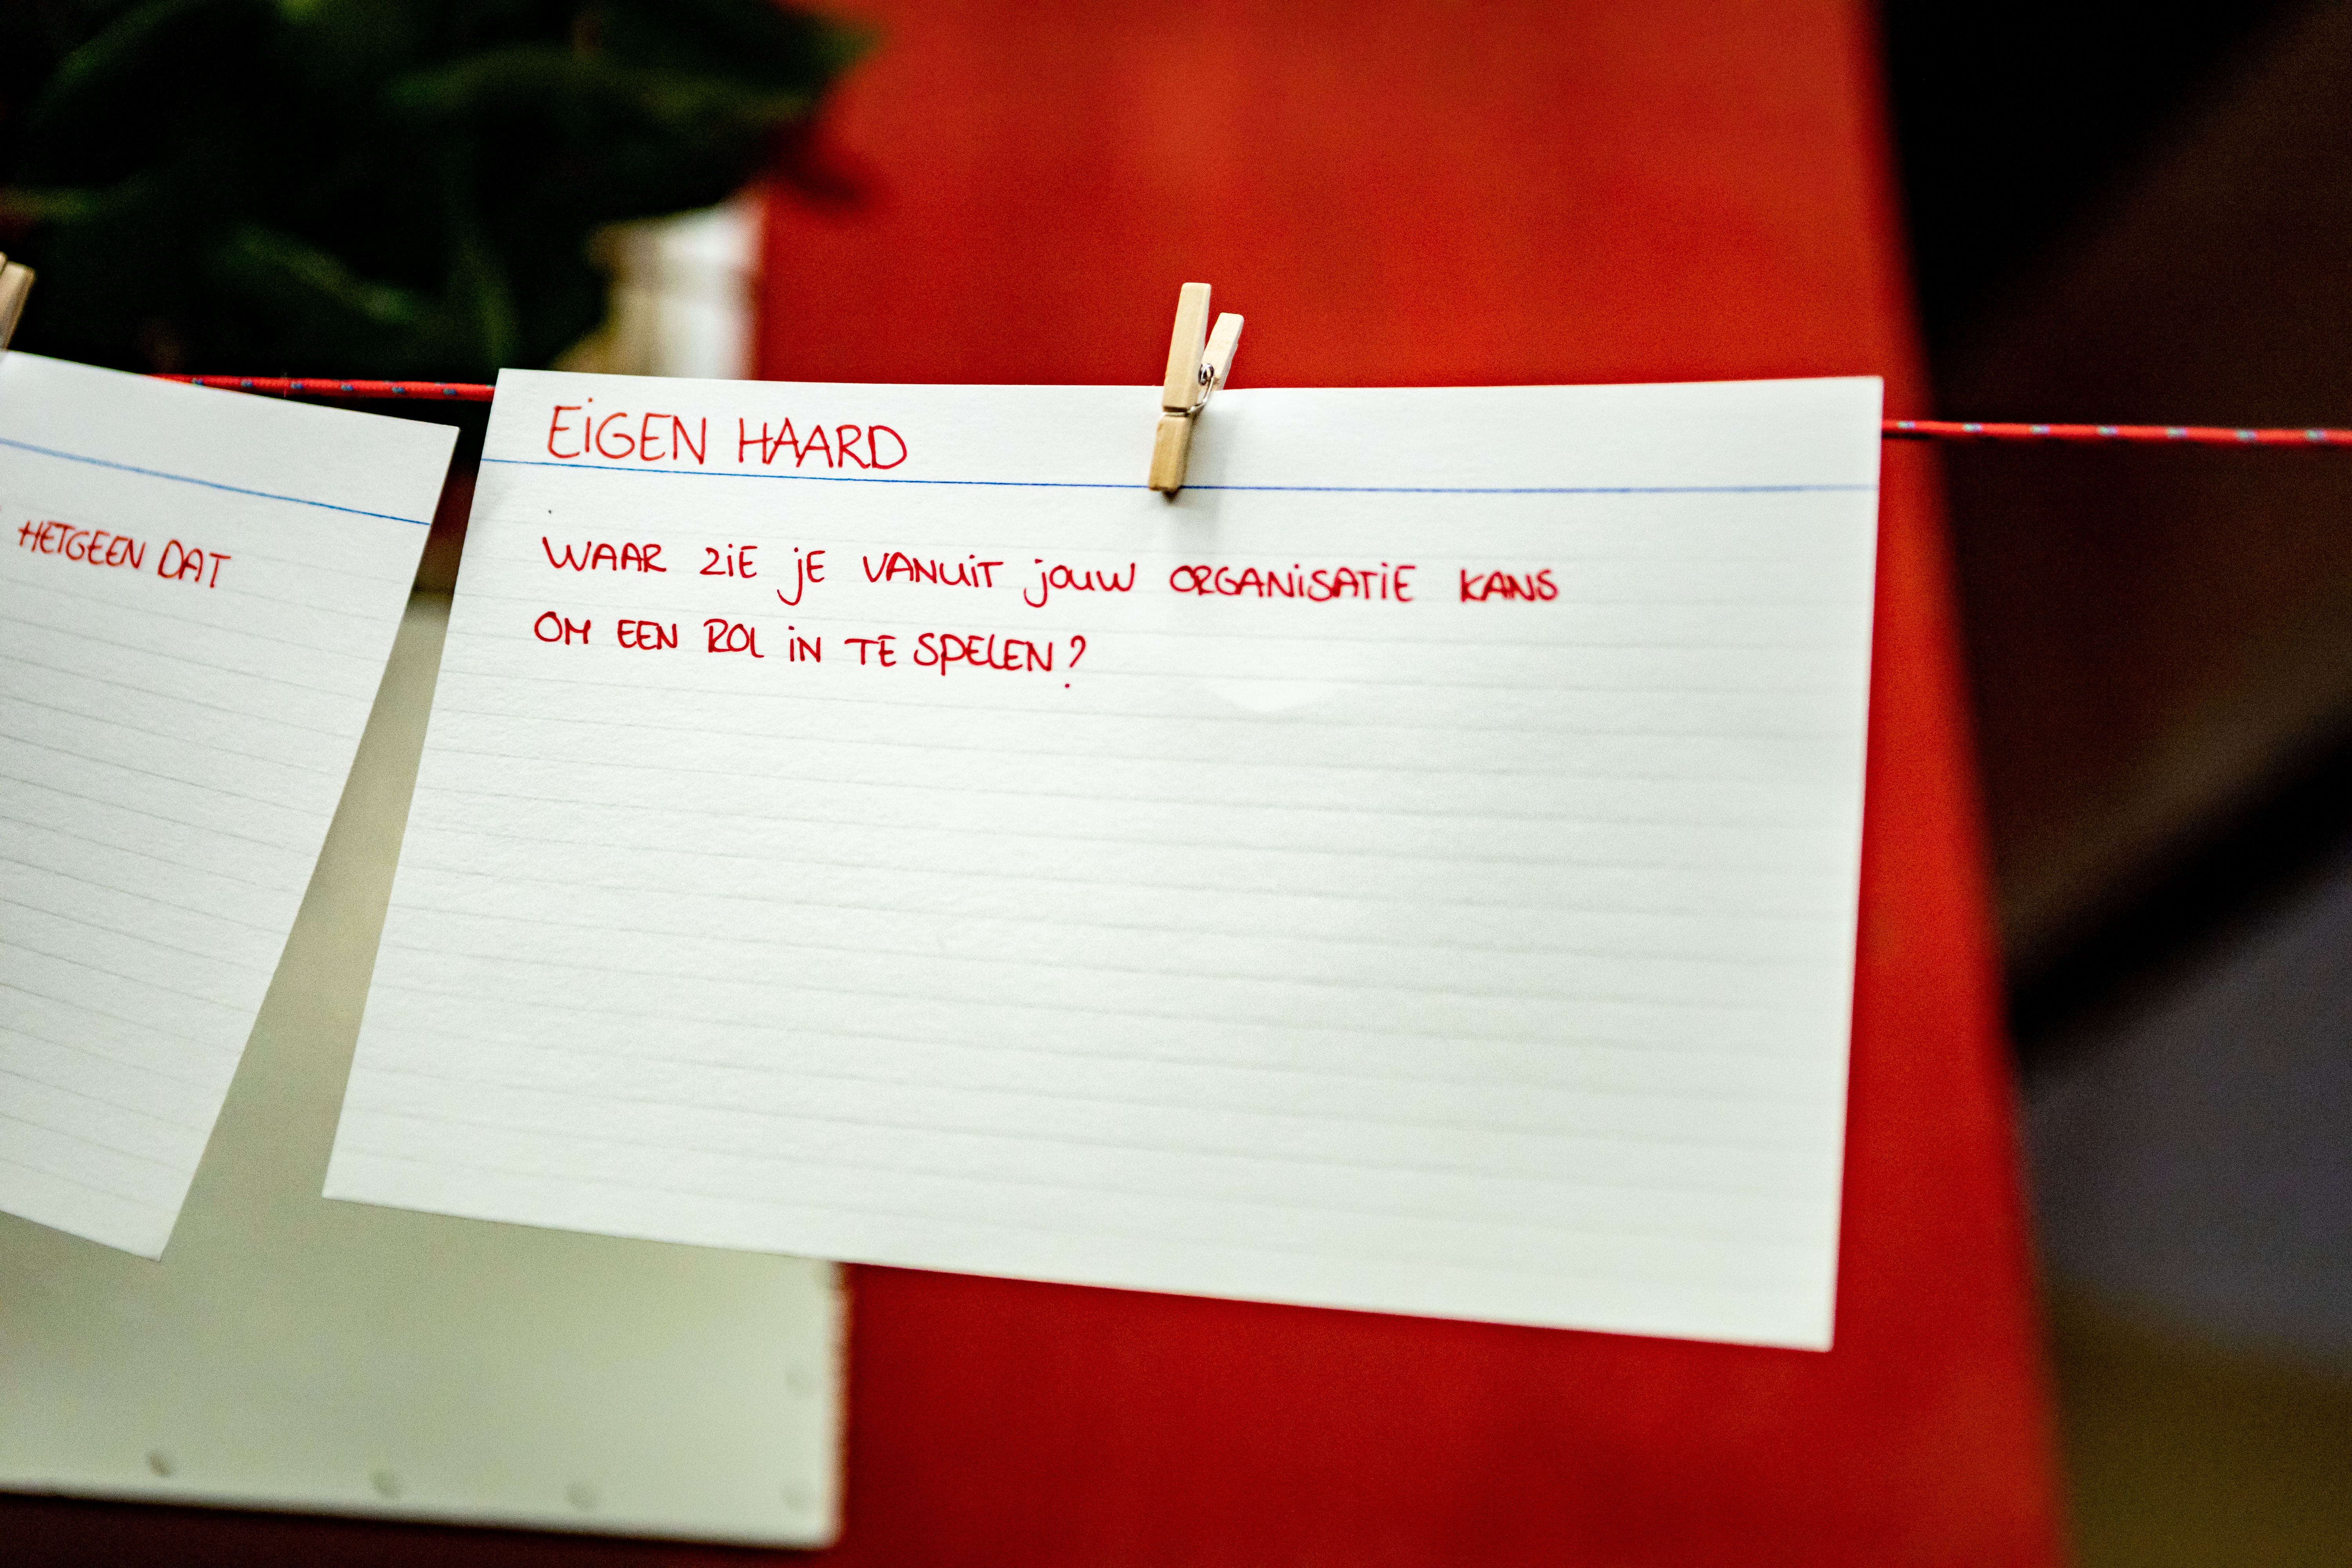 HETGEEN DAT
EIGEN HAARD
WAAR ZIE JE VANUIT JOUW ORGANISATIE KANS
OM EEN ROL IN TE SPELEN?